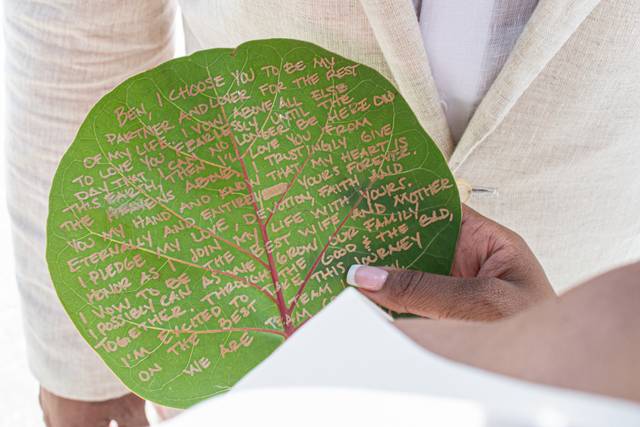 BEN, I CHOOSE YOU TO BE MY
PARTNER AND LOVER FOR THE REST
OF MY LIFE. I VOW ABOVE ALL ELSE
TO LOVE YOU ENDLESSLY UNTIL THE
DAY THAT I CAN NO LONGER BE HERE ON
THIS EARTH. I LOVE YOU FROM
THE ABOVE, AND I TRUSTINGLY GIVE
YOU MY HAND AND THAT MY HEART IS
ETERNALLY AND ENTIRELY YOURS FOREVER.
I PLEDGE MY LOVE, DEVOTION, FAITH AND
HONOR AS I JOIN MY LIFE WITH YOURS.
I VOW TO BE THE BEST WIFE AND MOTHER
I POSSIBLY CAN AS WE GROW OUR FAMILY
TOGETHER. THROUGH THE GOOD & THE BAD,
I'M EXCITED TO THIS JOURNEY
ON THE BEST TEAM
WE ARE TEAM